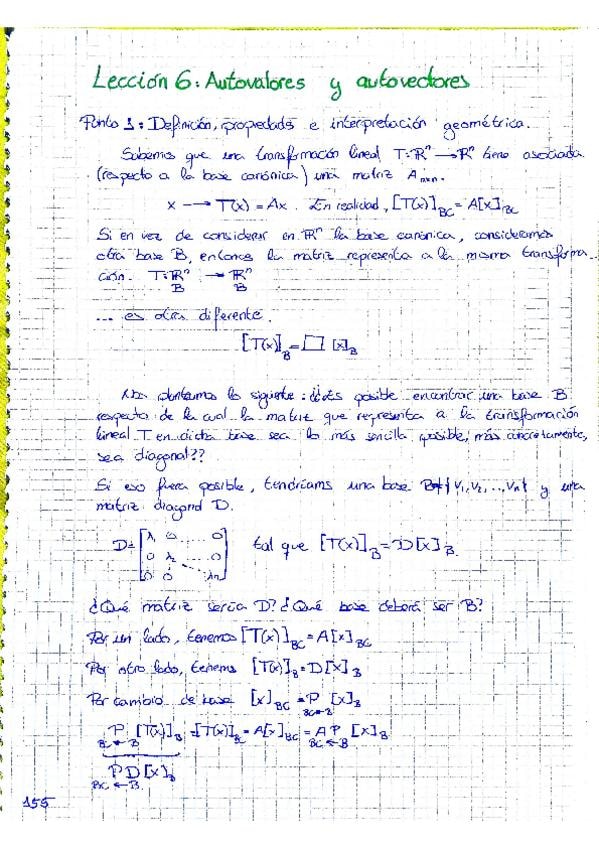 Lección 6: Autovalores y autovectores
Punto 1: Definición, propiedades e interpretación geométrica.
Sabemos que una transformación lineal T: ℝⁿ → ℝⁿ tiene asociada
(respecto a la base canónica) una matriz Aₙₓₙ.
x → T(x) = Ax. En realidad, [T(x)]_BC = A[x]_BC
Si en vez de considerar en ℝⁿ la base canónica, consideramos
otra base B, entonces la matriz representa a la misma transforma-
ción. T: ℝⁿ → ℝⁿ
B B
... es otra diferente.
[T(x)]_B = □ [x]_B
Nos planteamos lo siguiente: ¿¿es posible encontrar una base B
respecto de la cual la matriz que representa a la transformación
lineal T en dicha base sea lo más sencilla posible, más concretamente,
sea diagonal??
Si eso fuera posible, tendríamos una base B={v₁, v₂, ..., vₙ} y una
matriz diagonal D.
D= [λ₁ 0 ... 0
0 λ₂ ... 0
0 0 ... λₙ] tal que [T(x)]_B = D[x]_B.
¿Qué matriz sería D? ¿Qué base deberá ser B?
Por un lado, tenemos [T(x)]_BC = A[x]_BC
Por otro lado, tenemos [T(x)]_B = D[x]_B
Por cambio de base [x]_BC = P [x]_B
BC←B
P [T(x)]_B = [T(x)]_BC = A[x]_BC = A P [x]_B
BC←B BC←B
P D[x]_B
BC←B
155